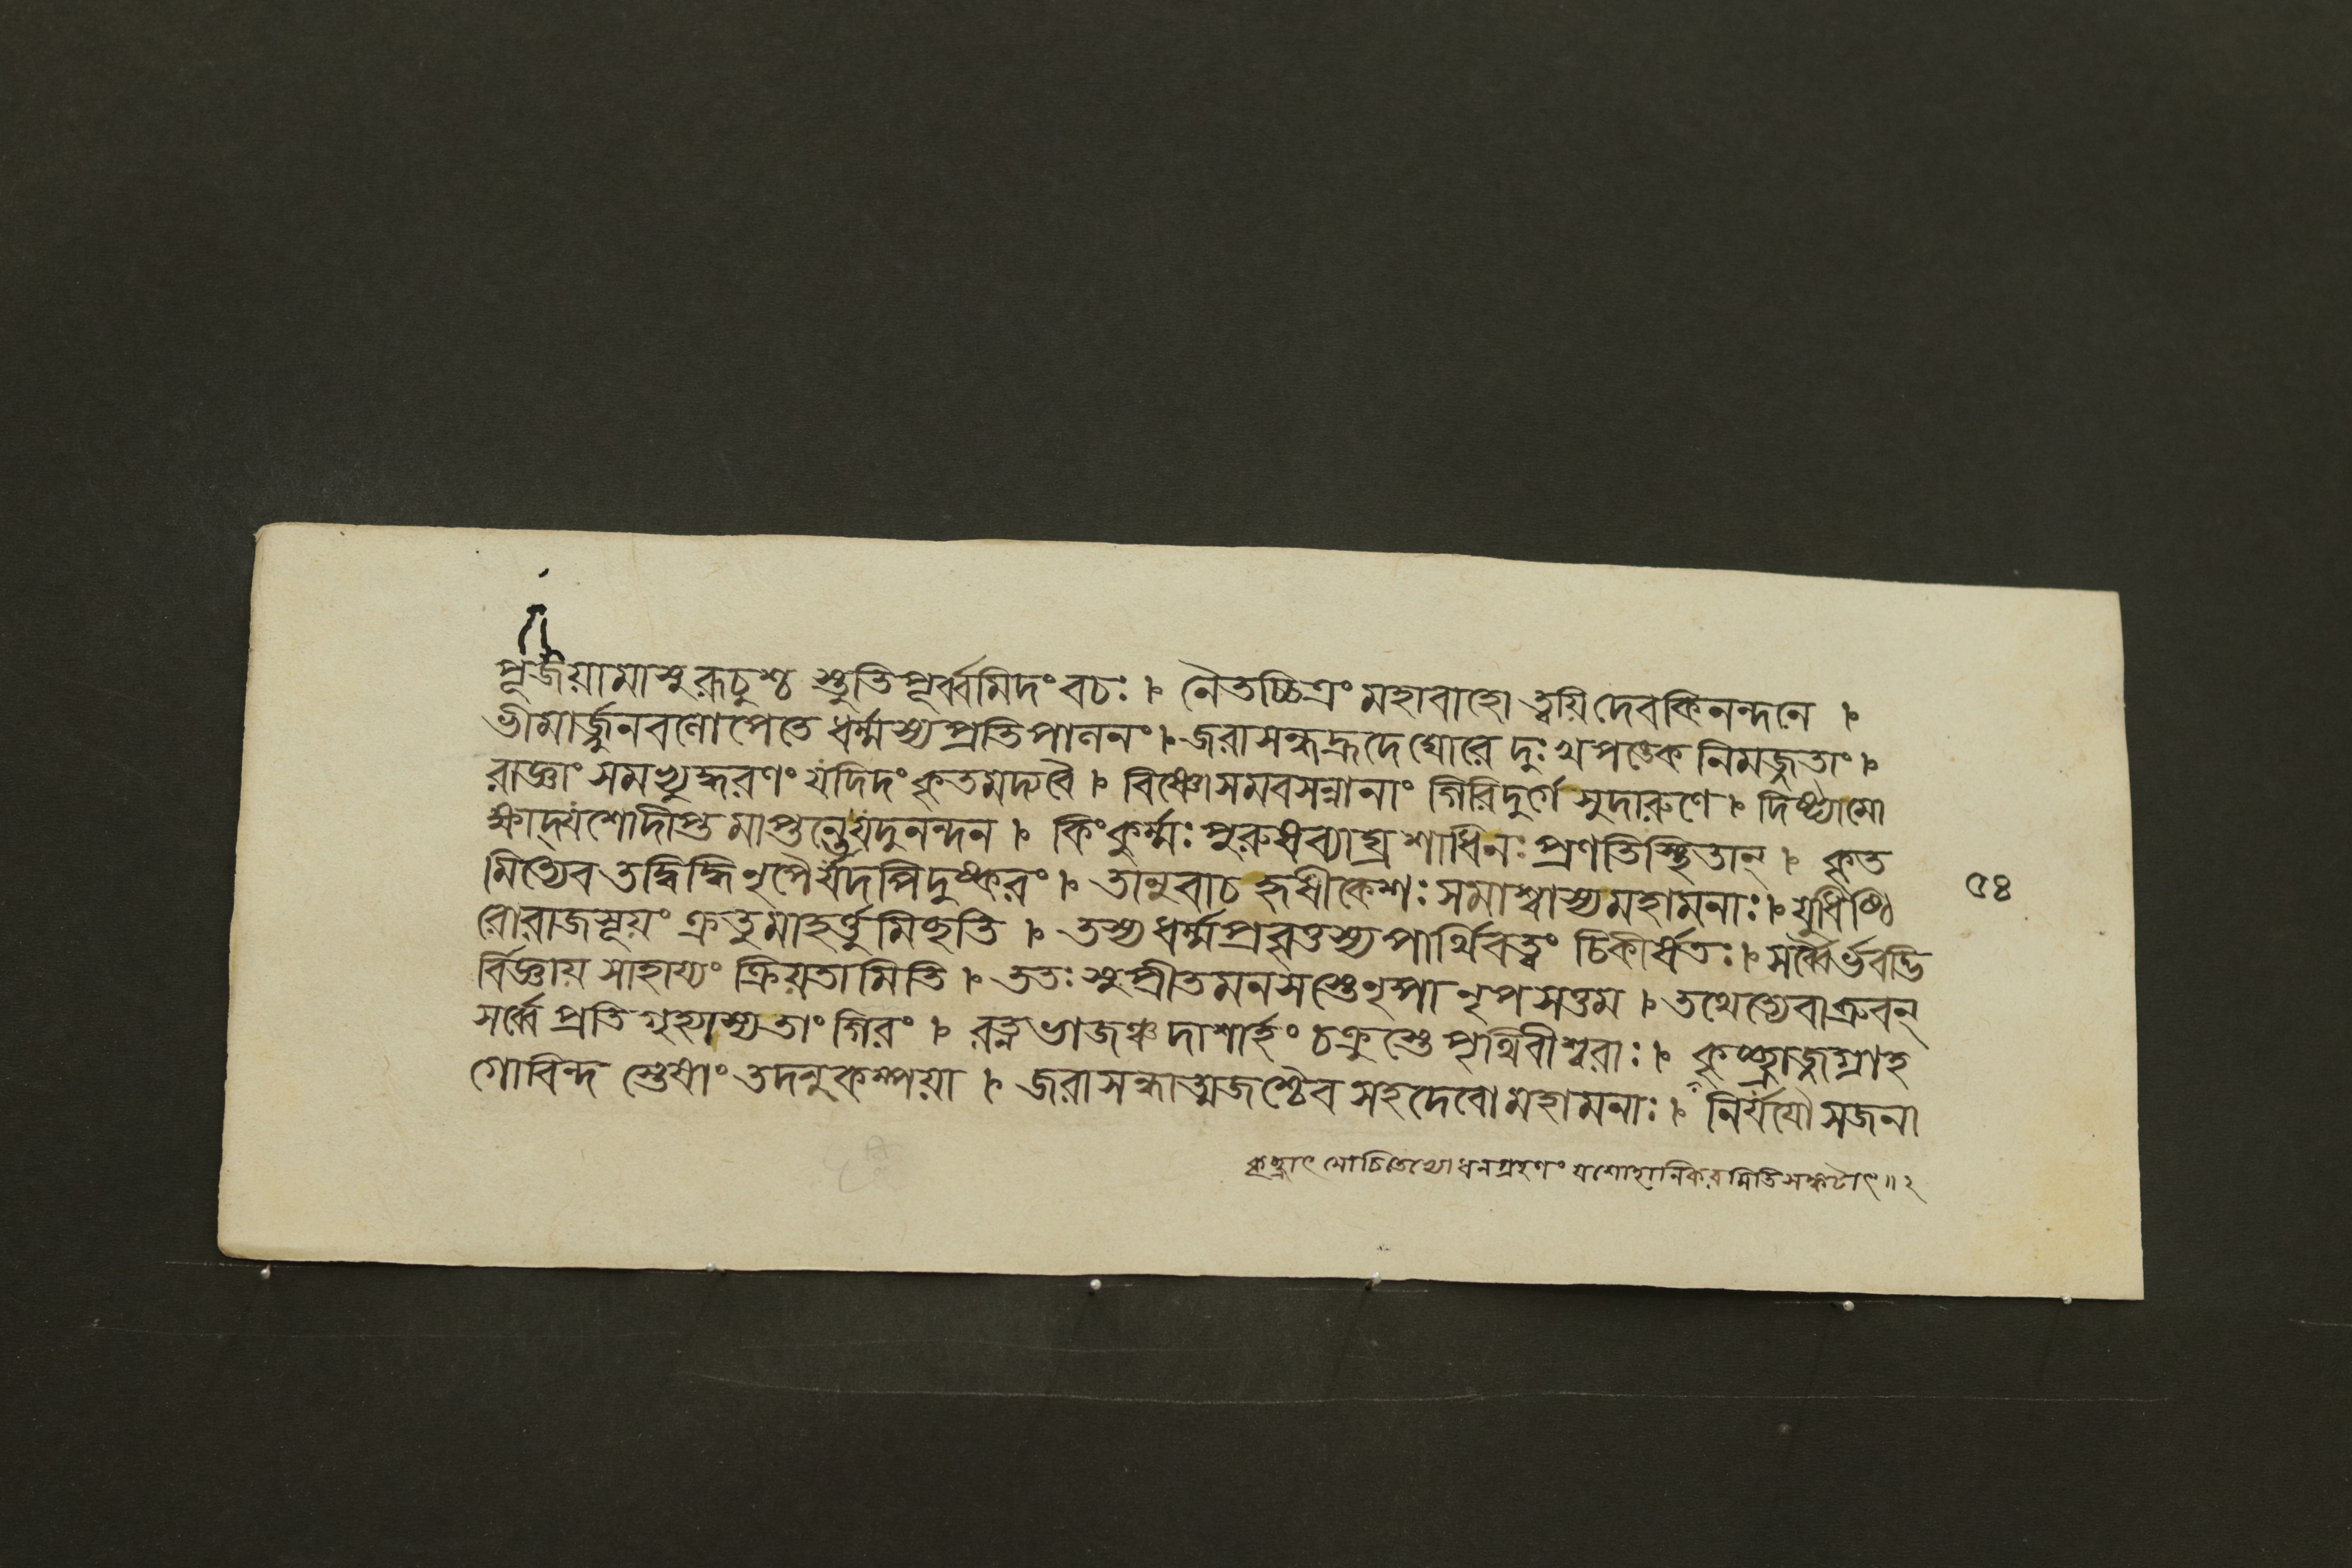 পূজয়ামাসুরূচুশ্চ স্তুতিপূর্ব্বমিদং বচঃ । নৈতচ্চিত্রং মহাবাহো ত্বয়ি দেবকিনন্দনে ।
ভীমার্জ্জুনবলোপেতে ধর্ম্মস্য প্রতিপালনং । জরাসন্ধহ্রদে ঘোরে দুঃখপঙ্কে নিমজ্জতাং ।
রাজ্ঞাং সমভ্যুদ্ধরণং যদিদং কৃতমদ্য বৈ । বিষ্ণো সমবসন্নানাং গিরিদুর্গে সুদারুণে । দিষ্ট্যা মো
ক্ষাদ্যশো দীপ্তমাপ্তন্তে যদুনন্দন । কিং কুর্ম্মঃ পুরুষব্যাঘ্র শাধি নঃ প্রণতিস্থিতান্ । কৃত
মিত্যেব তদ্বিদ্ধি নৃপৈর্যদপি দুষ্করং । তানুবাচ হৃষীকেশঃ সমাশ্বাস্য মহামনাঃ । যুধিষ্ঠি
রো রাজসূয়ং ক্রতুমাহর্ত্তুমিছতি । তস্য ধর্ম্মপ্রবৃত্তস্য পার্থিবত্বং চিকীর্ষতঃ । সর্ব্বৈর্ভবদ্ভি
র্বিজ্ঞায় সাহায্যং ক্রিয়তামিতি । ততঃ সুপ্রীতমনসস্তে নৃপা নৃপসত্তম । তথেত্যেবাব্রুবন্
সর্ব্বে প্রতিগৃহ্যাস্য তাং গিরং । রত্নভাজঞ্চ দাশার্হং চক্রুস্তে পৃথিবীশ্বরাঃ । কৃচ্ছ্রাজ্জগ্রাহ
গোবিন্দস্তেষাং তদনুকম্পয়া । জরাসন্ধাত্মজশ্চৈব সহদেবো মহামনাঃ । নির্যযৌ সজনা
৫৪
কৃচ্ছ্রাৎ মোচিতেভ্যো ধনগ্রহণং যশোহানিকরমিতি সঙ্কটাৎ ॥ ২